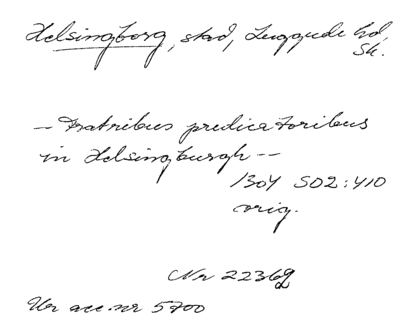 Helsingborg, stad, Luggude hd,
Sk.
-- Fratribus predicatoribus
in Helsingburgh --
1304 SD2:410
orig.
Nr 22362
Ur acc.nr 5700